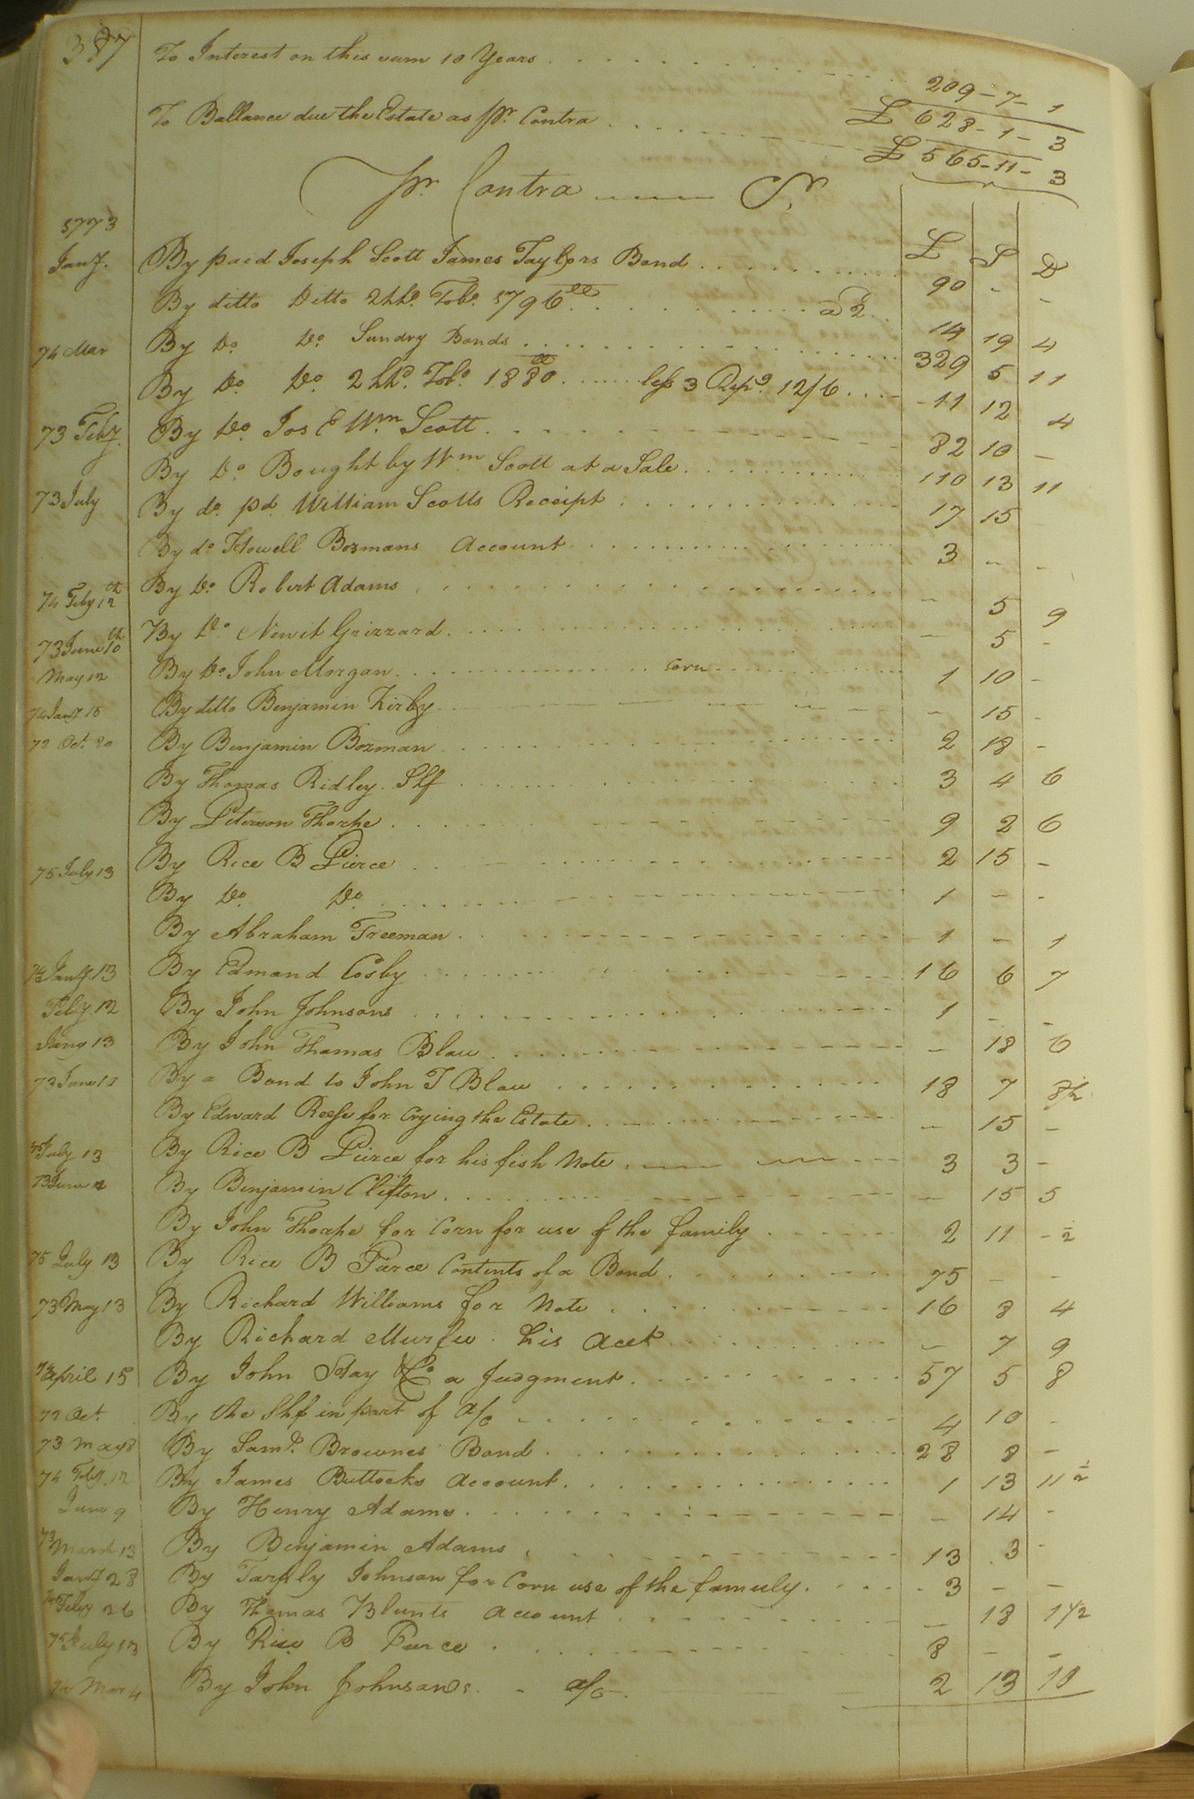 387
To Interest on this sum 10 Years . . . . 209 - 7 - 1
£ 628 - 1 - 3
To Ballance due the Estate as pr. Contra . . . . £ 565 - 11 - 3
pr. Contra Cr.
£ S D
1773
Jany. By paid Joseph Scott James Taylors Bond . . . . 90 - -
By ditto Ditto 2 hhd. Tobo. 1796 . . . . a 2 . . 14 19 4
74 Mar By Do. Do. Sundry Bonds . . . . 329 5 11
By Do. Do. 2 hhd. Tobo. 1880 . . . . less 3 12/6 . . . . 11 12 4
73 Feby. By Do. Jos & Wm Scott . . . . 82 10 -
By Do. Bought by Wm Scott at a Sale . . . . 110 13 11
73 July By do. pd. William Scotts Receipt . . . . 17 15
By do. Howell Bozmans Account . . . . 3 - -
74 Feby 12th By Do. Robert Adams . . . . - 5 9
73 June 10th By Do. Newit Grizzard . . . . - 5 -
May 12 By Do. John Morgan . . . . Corn . . . . 1 10 -
74 Jany. 15 By ditto Benjamin Kirby . . . . - 15 -
72 Oct. 20 By Benjamin Bozman . . . . 2 18 -
By Thomas Ridley. Shf . . . . 3 4 6
By Peterson Thorpe . . . . 9 2 6
75 July 13 By Rice B Pierce . . . . 2 15 -
By Do. Do. . . . . 1 - -
By Abraham Freeman . . . . 1 - 1
74 Jany. 13 By Edmand Cosby . . . . 16 6 7
Feby. 12 By John Johnsons . . . . 1 - -
Jany 13 By John Thomas Blau . . . . - 18 6
73 June 11 By a Bond to John T Blau . . . . 18 7 8½
By Edward Reese for Crying the Estate . . . . - 15 -
75 July 13 By Rice B Pierce for his fish Note . . . . 3 3 -
73 June 2 By Benjamin Clifton . . . . - 15 5
By John Thorpe for Corn for use of the family . . . . 2 11 - ½
75 July 13 By Rice B Pierce Contents of a Bond . . . . 75 - -
73 May 13 By Richard Williams for Note . . . . 16 8 4
By Richard Murfee his Acct . . . . - 7 9
74 April 15 By John Hay & Co. a Judgment . . . . 57 5 8
72 Oct. By the Shf in part of a/c . . . . 4 10 -
73 May 8 By Saml. Brownes Bond . . . . 28 8 -
74 Feby. 12 By James Buttocks Account . . . . 1 13 11½
June 9 By Henry Adams . . . . - 14 -
73 March 13 By Benjamin Adams . . . . 13 3 -
Jany 28 By Tarply Johnson for Corn use of the family . . . . 3 - -
Feby 26 By Thomas Blunts Account . . . . - 18 1½
75 July 13 By Rice B Pierce . . . . 8 - -
74 Mar 4 By John Johnsons . . a/c . . 2 13 10